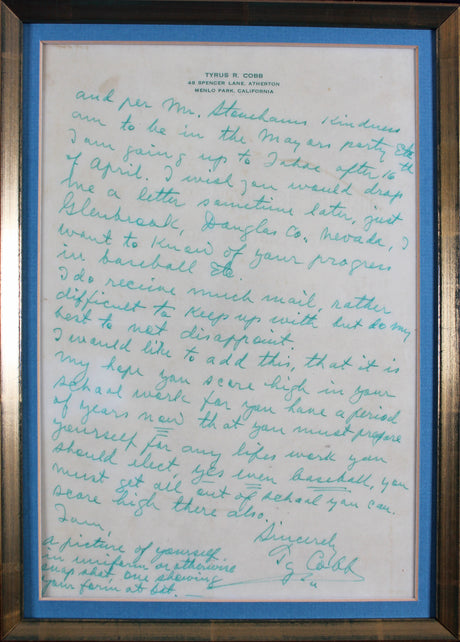 TYRUS R. COBB
48 SPENCER LANE, ATHERTON
MENLO PARK, CALIFORNIA
and per Mr. Stonehams Kindness
am to be in the Mayors party Etc
I am going up to Tahoe after 16th
of April. I wish you would drop
me a letter sometime later, just
Glenbrook, Douglas Co., Nevada, I
want to Know of your progress
in baseball Etc.
I do receive much mail, rather
difficult to Keep up with but do my
best to not disappoint.
I would like to add this, that it is
my hope you score high in your
school work for you have a period
of years now that you must prepare
yourself for any lifes work you
should elect, yes even baseball, you
must get all out of school you can.
score high there also.
I am,
Sincerely
Ty Cobb
a picture of yourself
in uniform or otherwise
snap shot one showing
your form at bat.